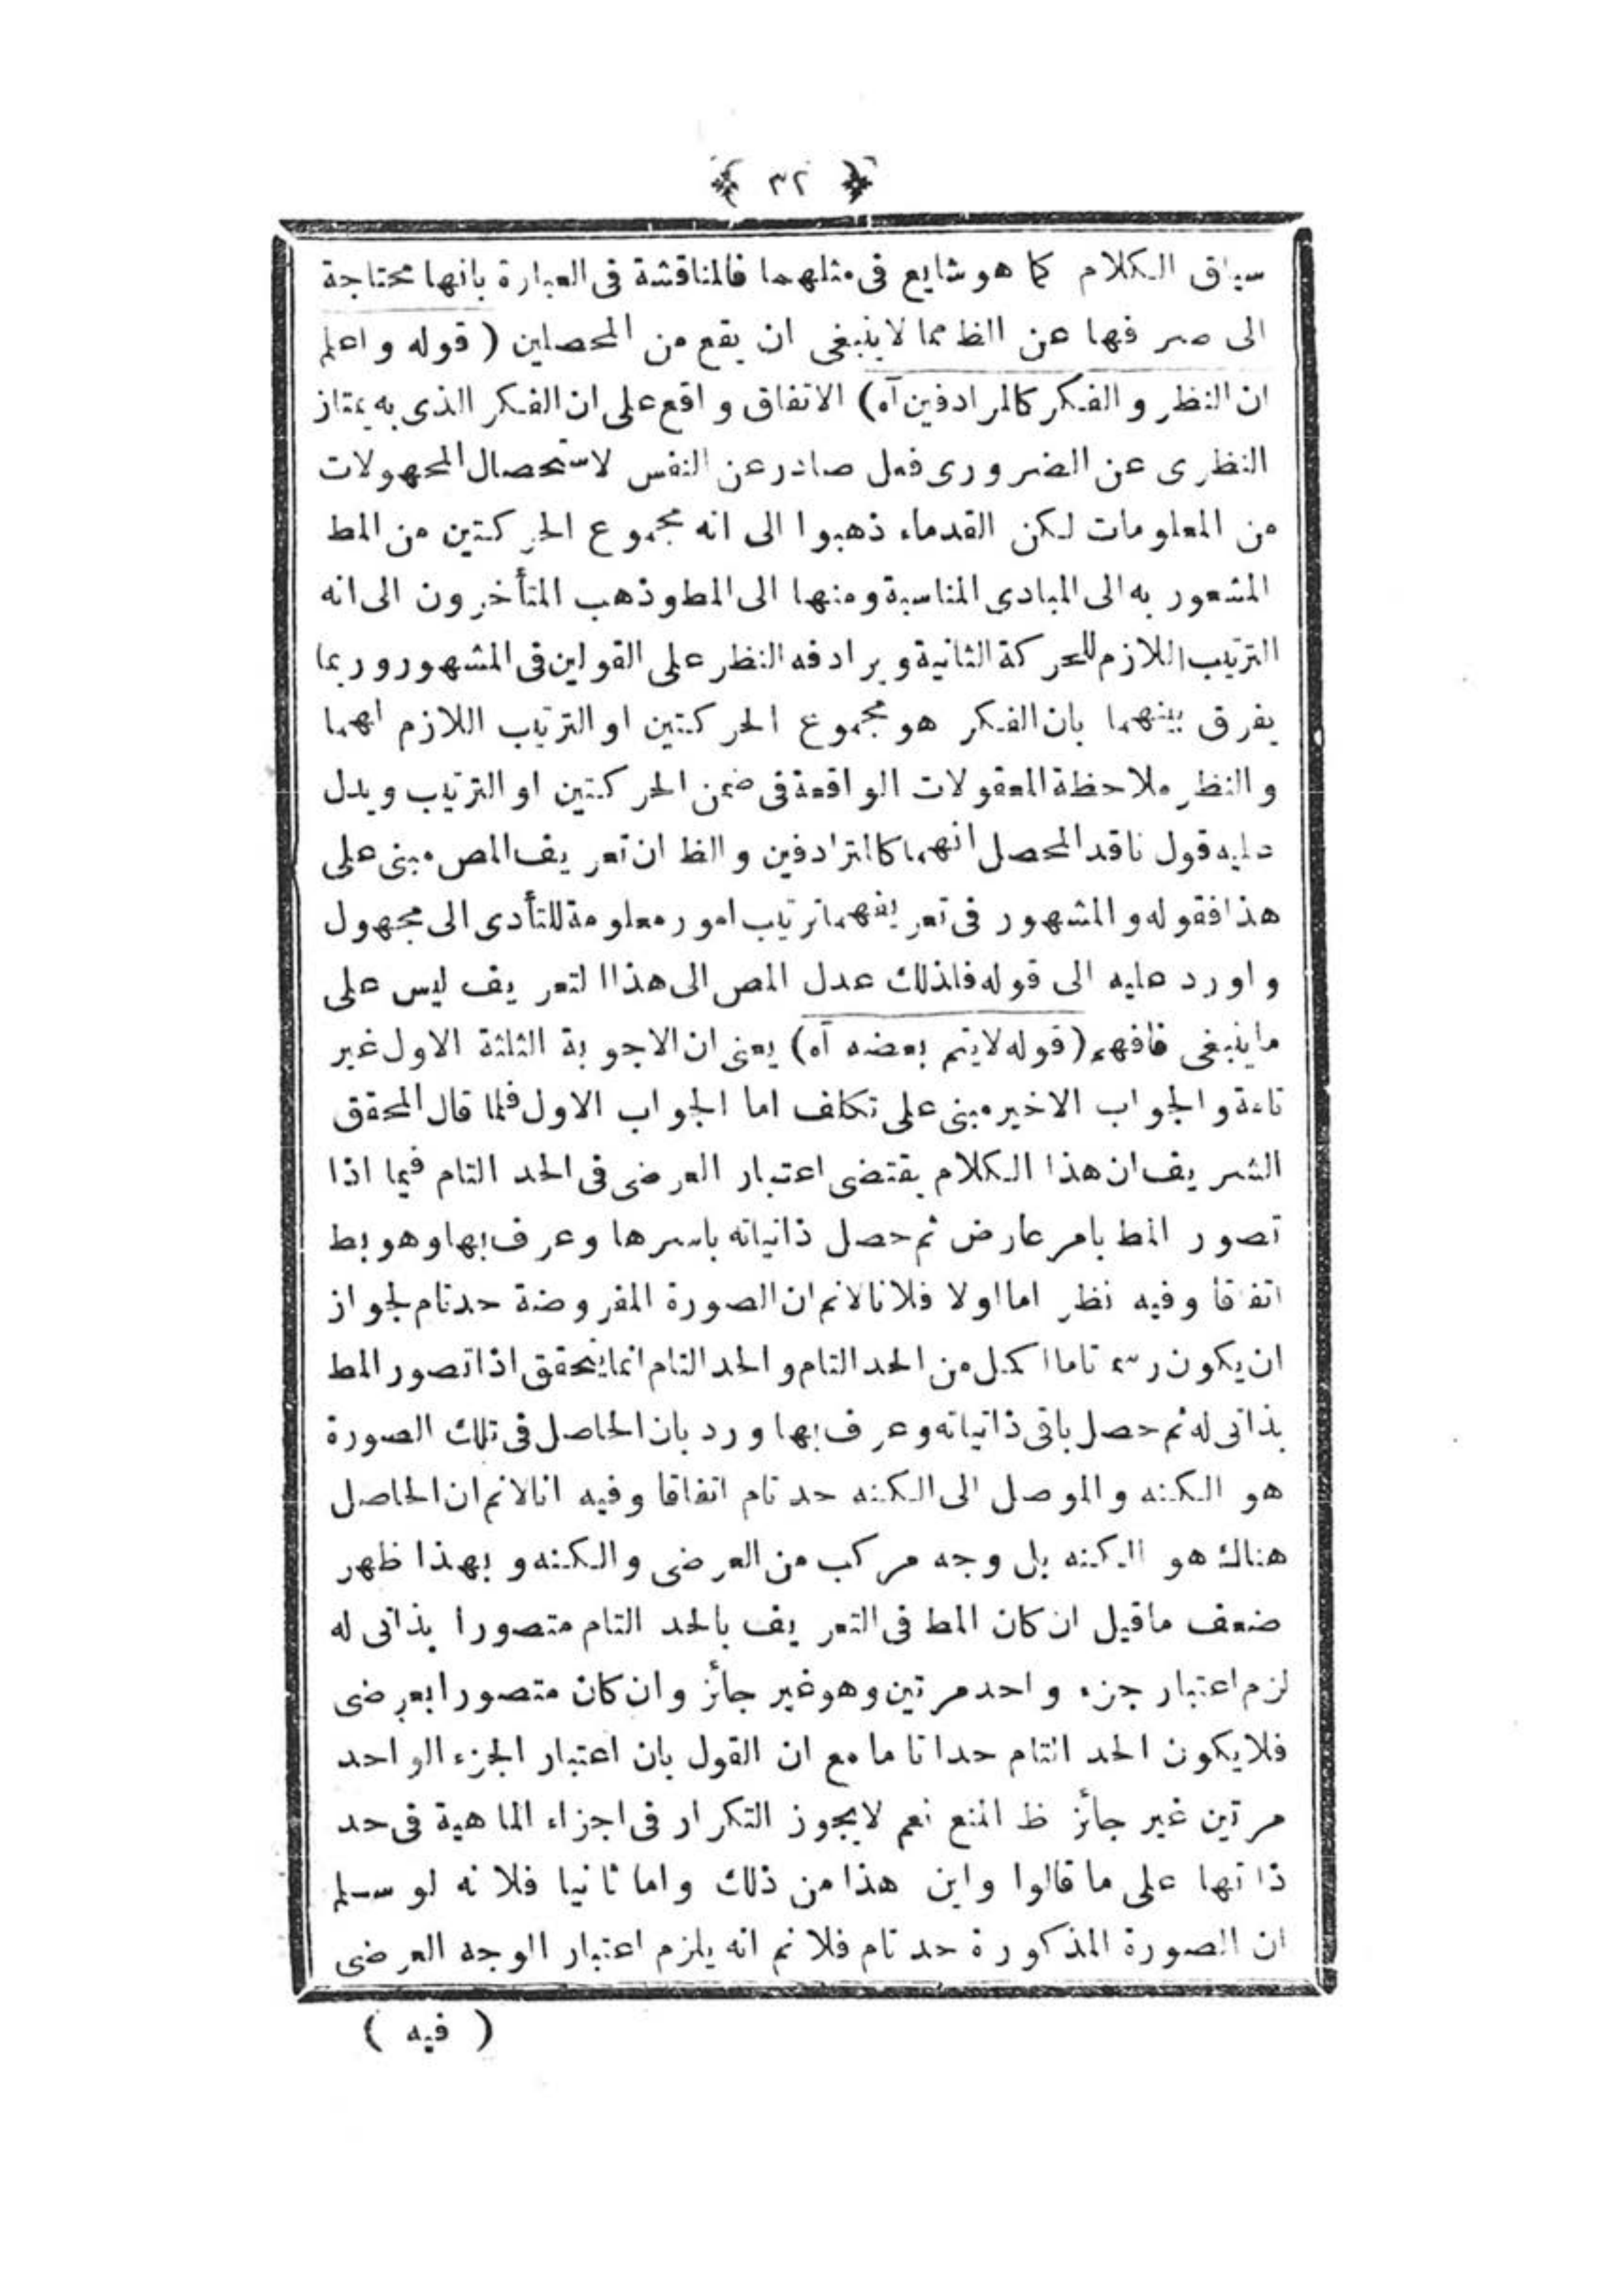 ﴿ ٣٢ ﴾
سياق الكلام كما هو شايع فى مثلهما فالمناقشة فى العبارة بانها محتاجة
الى صرفها عن الظ مما لا ينبغى ان يقع من المحصلين ( قوله واعلم
ان النظر والفكر كالمرادفين آه ) الاتفاق واقع على ان الفكر الذى به يمتاز
النظرى عن الضرورى فعل صادر عن النفس لاستحصال المجهولات
من المعلومات لكن القدماء ذهبوا الى انه مجموع الحركتين من المط
المشعور به الى المبادى المناسبة ومنها الى المط وذهب المتأخرون الى انه
الترتيب اللازم للحركة الثانية ويرادفه النظر على القولين فى المشهور وربما
يفرق بينهما بان الفكر هو مجموع الحركتين او الترتيب اللازم لهما
والنظر ملاحظة المعقولات الواقعة فى ضمن الحركتين او الترتيب ويدل
عليه قول ناقد المحصل انهما كالمترادفين والظ ان تعريف المص مبنى على
هذا فقوله والمشهور فى تعريفهما ترتيب امور معلومة للتأدى الى مجهول
واورد عليه الى قوله فلذلك عدل المص الى هذا التعريف ليس على
ما ينبغى فافهم ( قوله لا يتم بعضه آه ) يعنى ان الاجوبة الثلثة الاول غير
تامة والجواب الاخير مبنى على تكلف اما الجواب الاول فلما قال المحقق
الشريف ان هذا الكلام يقتضى اعتبار العرضى فى الحد التام فيما اذا
تصور المط بامر عارض ثم حصل ذاتياته باسرها وعرف بها وهو بط
اتفاقا وفيه نظر اما اولا فلانا لانم ان الصورة المفروضة حد تام لجواز
ان يكون رسم تاما اكمل من الحد التام والحد التام انما يتحقق اذا تصور المط
بذاتى له ثم حصل باقى ذاتياته وعرف بها ورد بان الحاصل فى تلك الصورة
هو الكنه والموصل الى الكنه حد تام اتفاقا وفيه انا لانم ان الحاصل
هناك هو الكنه بل وجه مركب من العرضى والكنه وبهذا ظهر
ضعف ما قيل ان كان المط فى التعريف بالحد التام متصورا بذاتى له
لزم اعتبار جزء واحد مرتين وهو غير جائز وان كان متصورا بعرضى
فلا يكون الحد التام حدا تاما مع ان القول بان اعتبار الجزء الواحد
مرتين غير جائز ظ المنع نعم لا يجوز التكرار فى اجزاء الماهية فى حد
ذاتها على ما قالوا واين هذا من ذلك واما ثانيا فلانه لو سلم
ان الصورة المذكورة حد تام فلا نم انه يلزم اعتبار الوجه العرضى
( فيه )